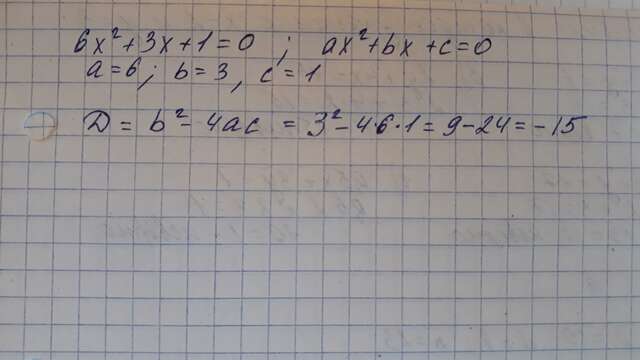 6x²+3x+1=0 ; ax²+bx+c=0
a=6; b=3, c=1
D = b²-4ac = 3²-4·6·1 = 9-24 = -15